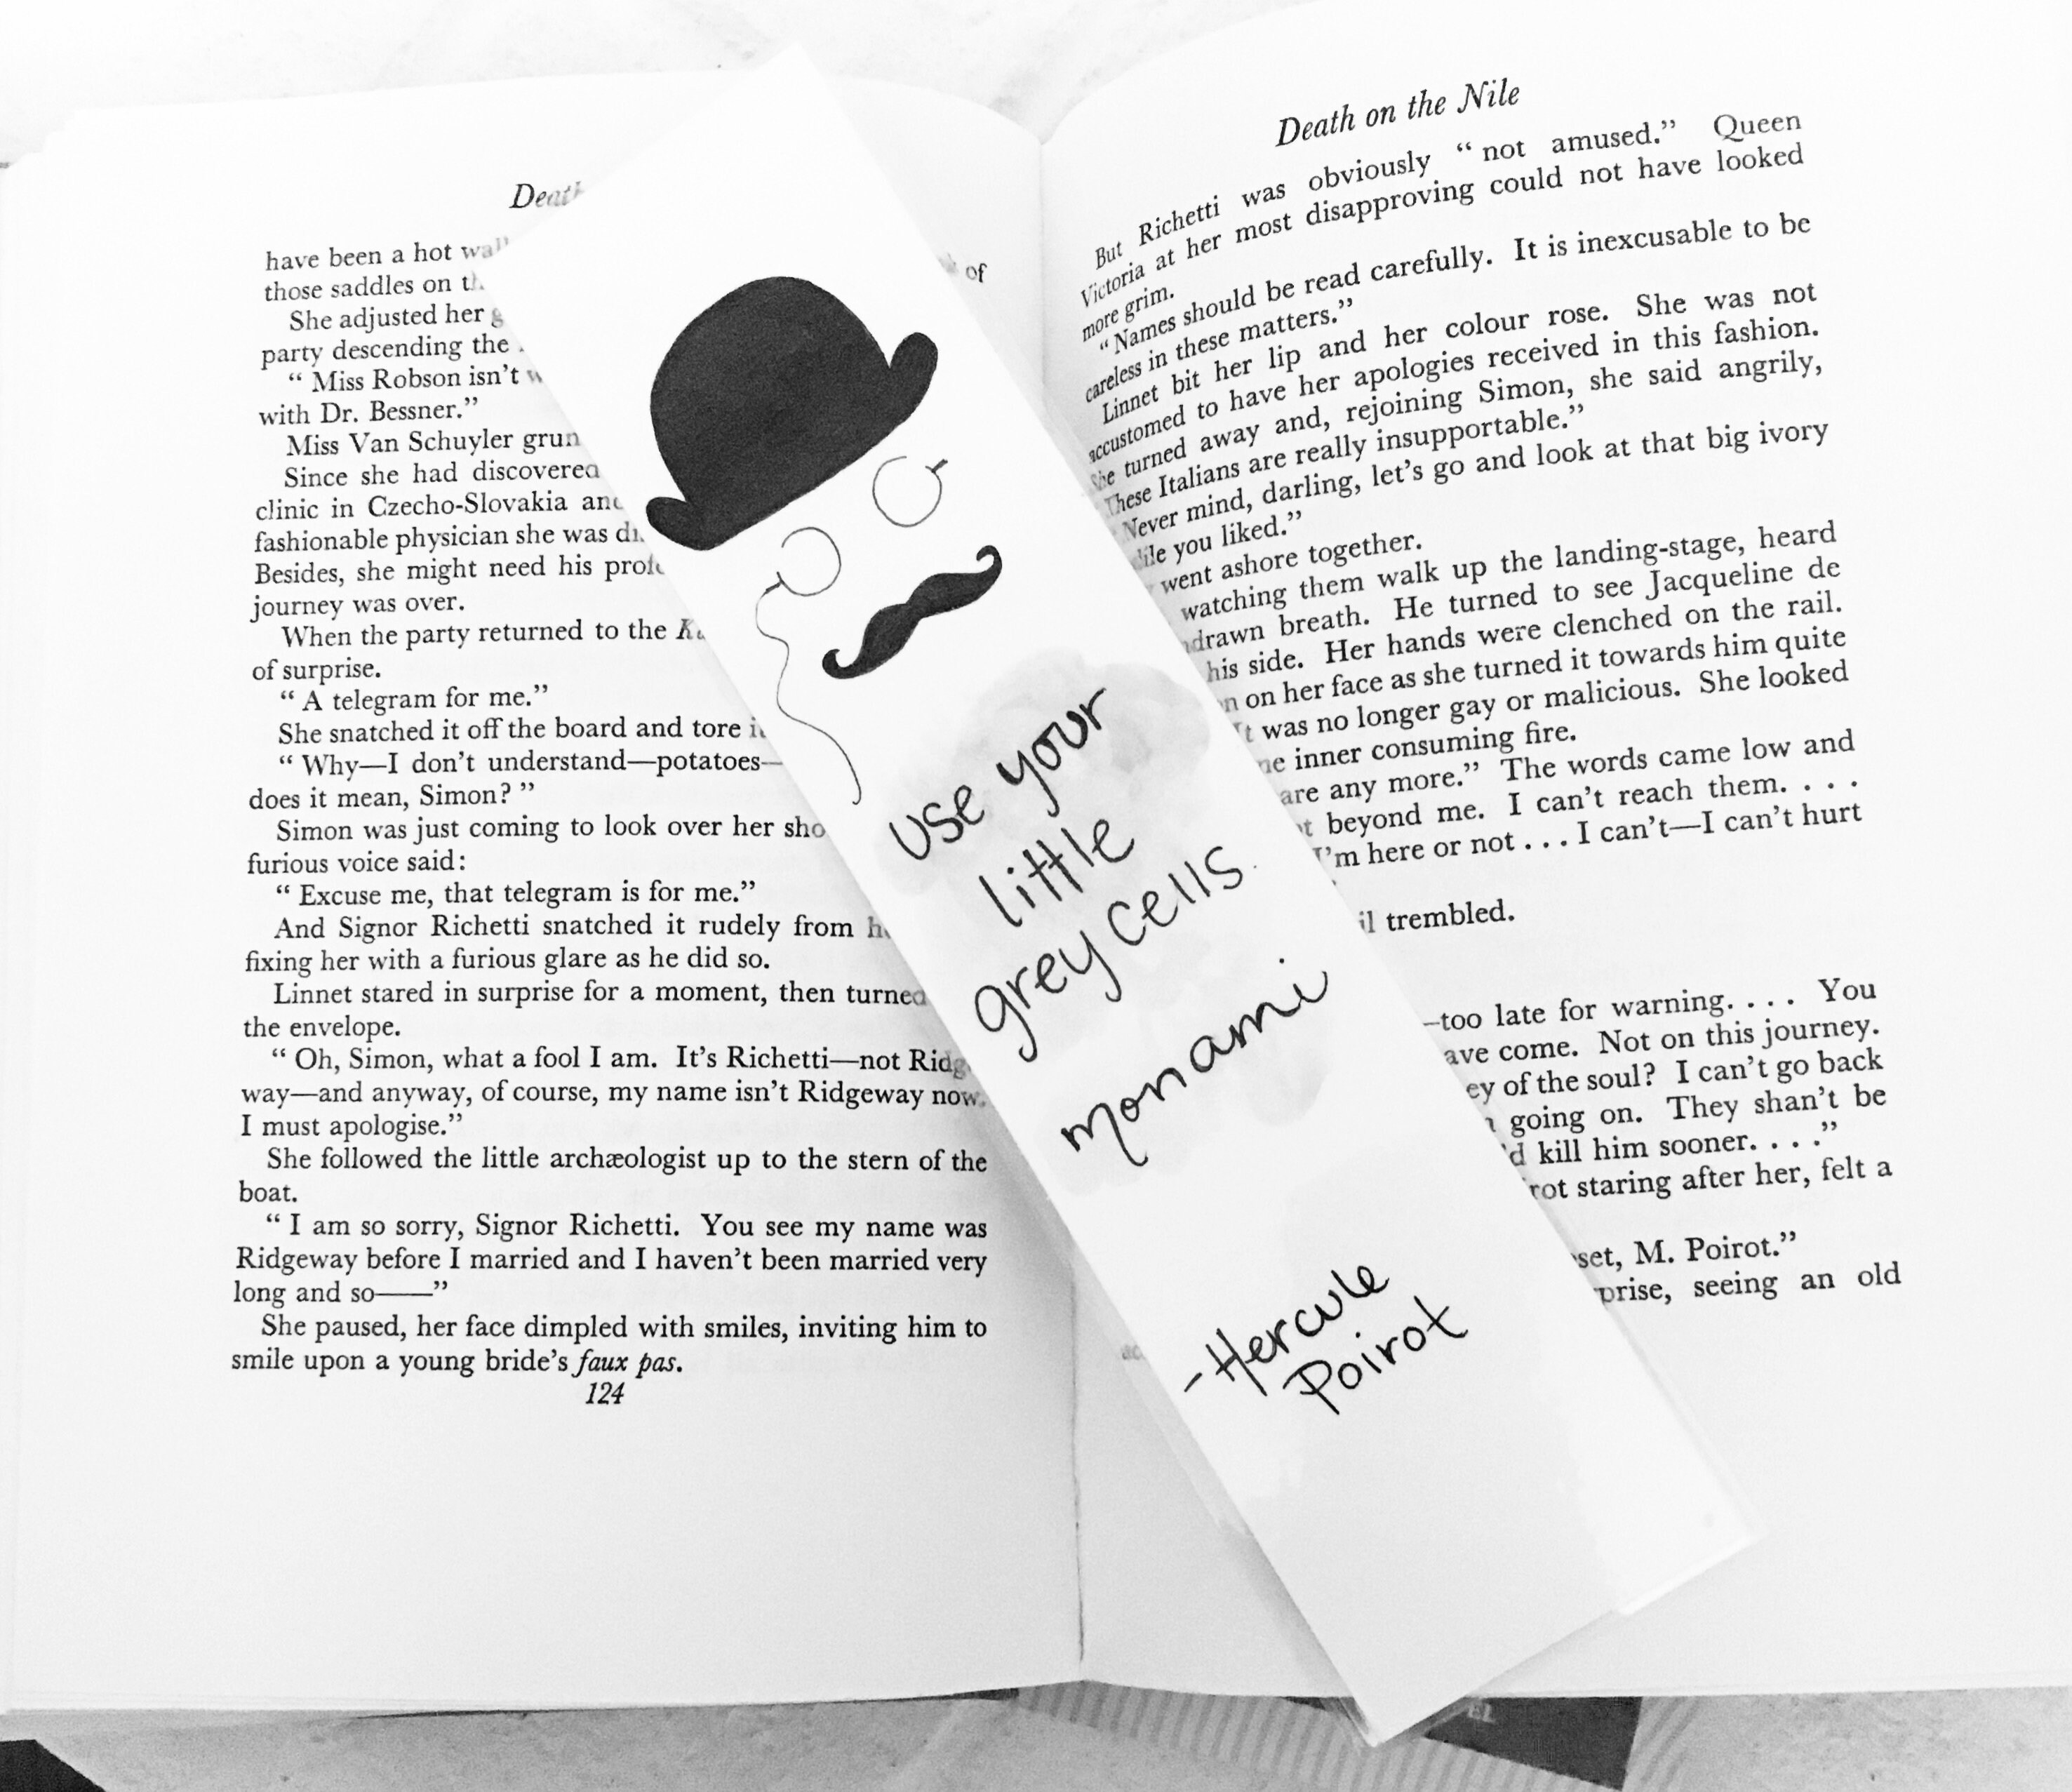 have been a hot
those saddles on
She adjusted her
party descending the
“ Miss Robson isn’t
with Dr. Bessner.”
Miss Van Schuyler
Since she had discovered
clinic in Czecho-Slovakia
fashionable physician she was
Besides, she might need his
journey was over.
When the party returned to the
of surprise.
“ A telegram for me.”
She snatched it off the board and tore
“ Why—I don’t understand—potatoes—
does it mean, Simon? ”
Simon was just coming to look over her
furious voice said:
“ Excuse me, that telegram is for me.”
And Signor Richetti snatched it rudely from
fixing her with a furious glare as he did so.
Linnet stared in surprise for a moment, then turned
the envelope.
“ Oh, Simon, what a fool I am. It’s Richetti—not Ridg
way—and anyway, of course, my name isn’t Ridgeway now.
I must apologise.”
She followed the little archæologist up to the stern of the
boat.
“ I am so sorry, Signor Richetti. You see my name was
Ridgeway before I married and I haven’t been married very
long and so——”
She paused, her face dimpled with smiles, inviting him to
smile upon a young bride’s faux pas.
124
of
use your
little
grey cells.
mon ami
- Hercule
Poirot
Death on the Nile
But Richetti was obviously “ not amused.” Queen
Victoria at her most disapproving could not have looked
more grim.
“ Names should be read carefully. It is inexcusable to be
careless in these matters.”
Linnet bit her lip and her colour rose. She was not
accustomed to have her apologies received in this fashion.
She turned away and, rejoining Simon, she said angrily,
These Italians are really insupportable.”
Never mind, darling, let’s go and look at that big ivory
you liked.”
went ashore together.
watching them walk up the landing-stage, heard
drawn breath. He turned to see Jacqueline de
his side. Her hands were clenched on the rail.
on her face as she turned it towards him quite
It was no longer gay or malicious. She looked
inner consuming fire.
are any more.” The words came low and
beyond me. I can’t reach them. . . .
I’m here or not . . . I can’t—I can’t hurt
trembled.
—too late for warning. . . . You
ave come. Not on this journey.
ey of the soul? I can’t go back
going on. They shan’t be
kill him sooner. . . .”
rot staring after her, felt a
set, M. Poirot.”
prise, seeing an old